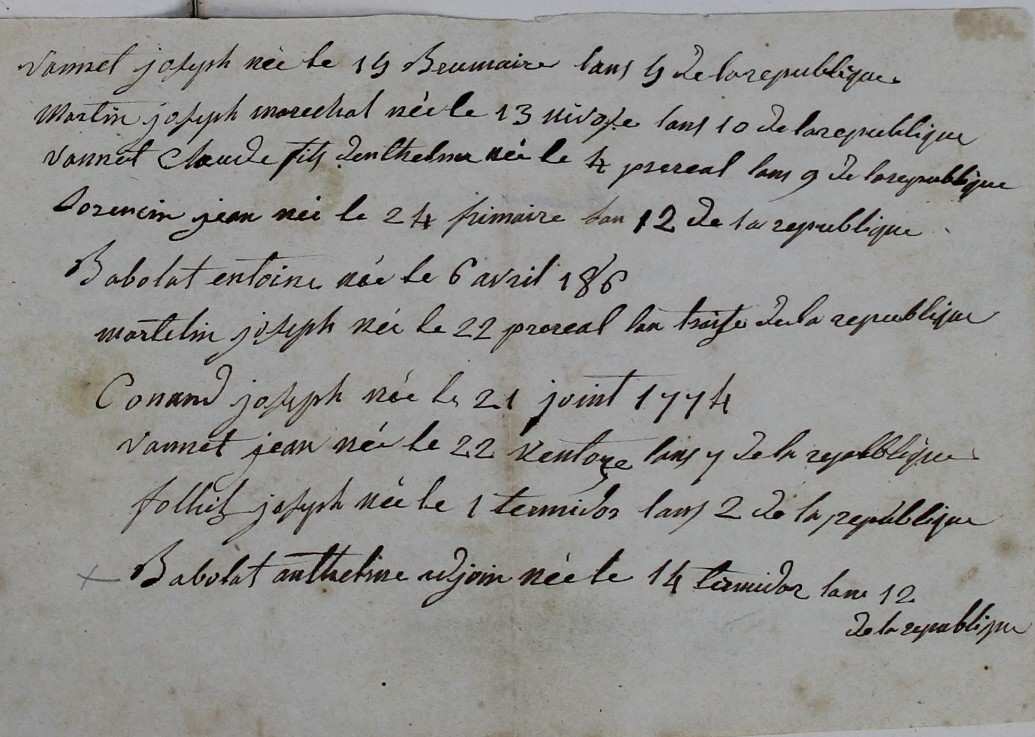 Vannet joseph née le 19 Brumaire lans 9 de la republique
Martin joseph marechal née le 13 nivose lans 10 de la republique
Vannet Claude fils née le 4 prereal lans 9 de la republique
jean née le 24 frimaire lan 12 de la republique
Babolat entoine née le 6 avril 186
martelin joseph née le 22 prereal lan traise de la republique
Conand joseph née le 21 joint 1774
Vannet jean née le 22 Ventose lans 7 de la republique
folliet joseph née le 1 termidor lans 2 de la republique
Babolat anthelme adjoin née le 14 termidor lans 12
de la republique